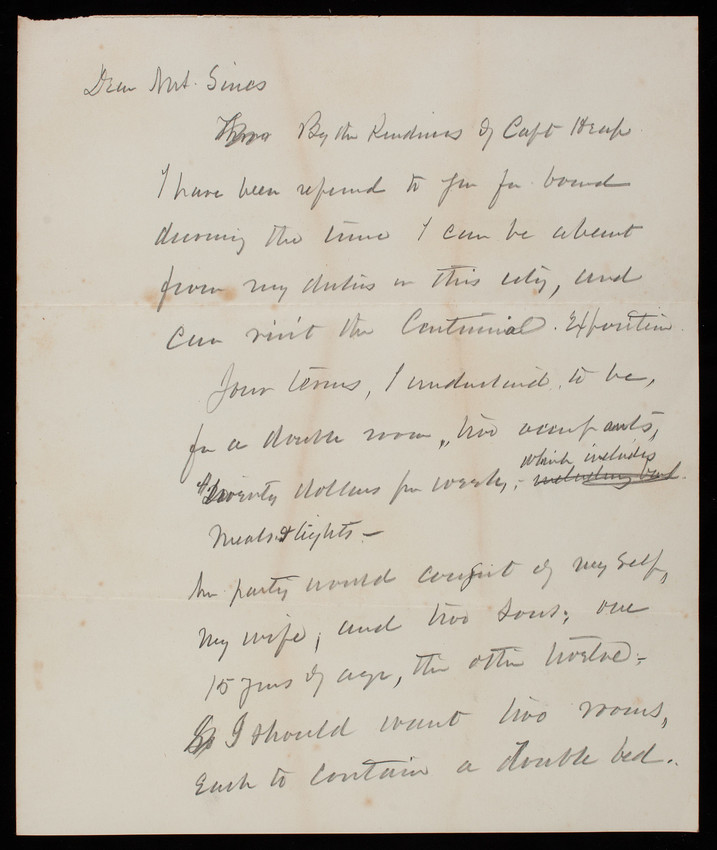 Dear Mrs. Sines
By the Kindness of Capt Heap
I have been referred to you for board
during the time I can be absent
from my duties in this city, and
can visit the Centennial Exposition.
Your terms, I understand, to be,
for a double room, two occupants,
twenty dollars per week, - which includes
including
meals & lights -
The party would consist of myself,
my wife, and two sons; one
15 years of age, the other twelve -
So I should want two rooms,
Each to contain a double bed.